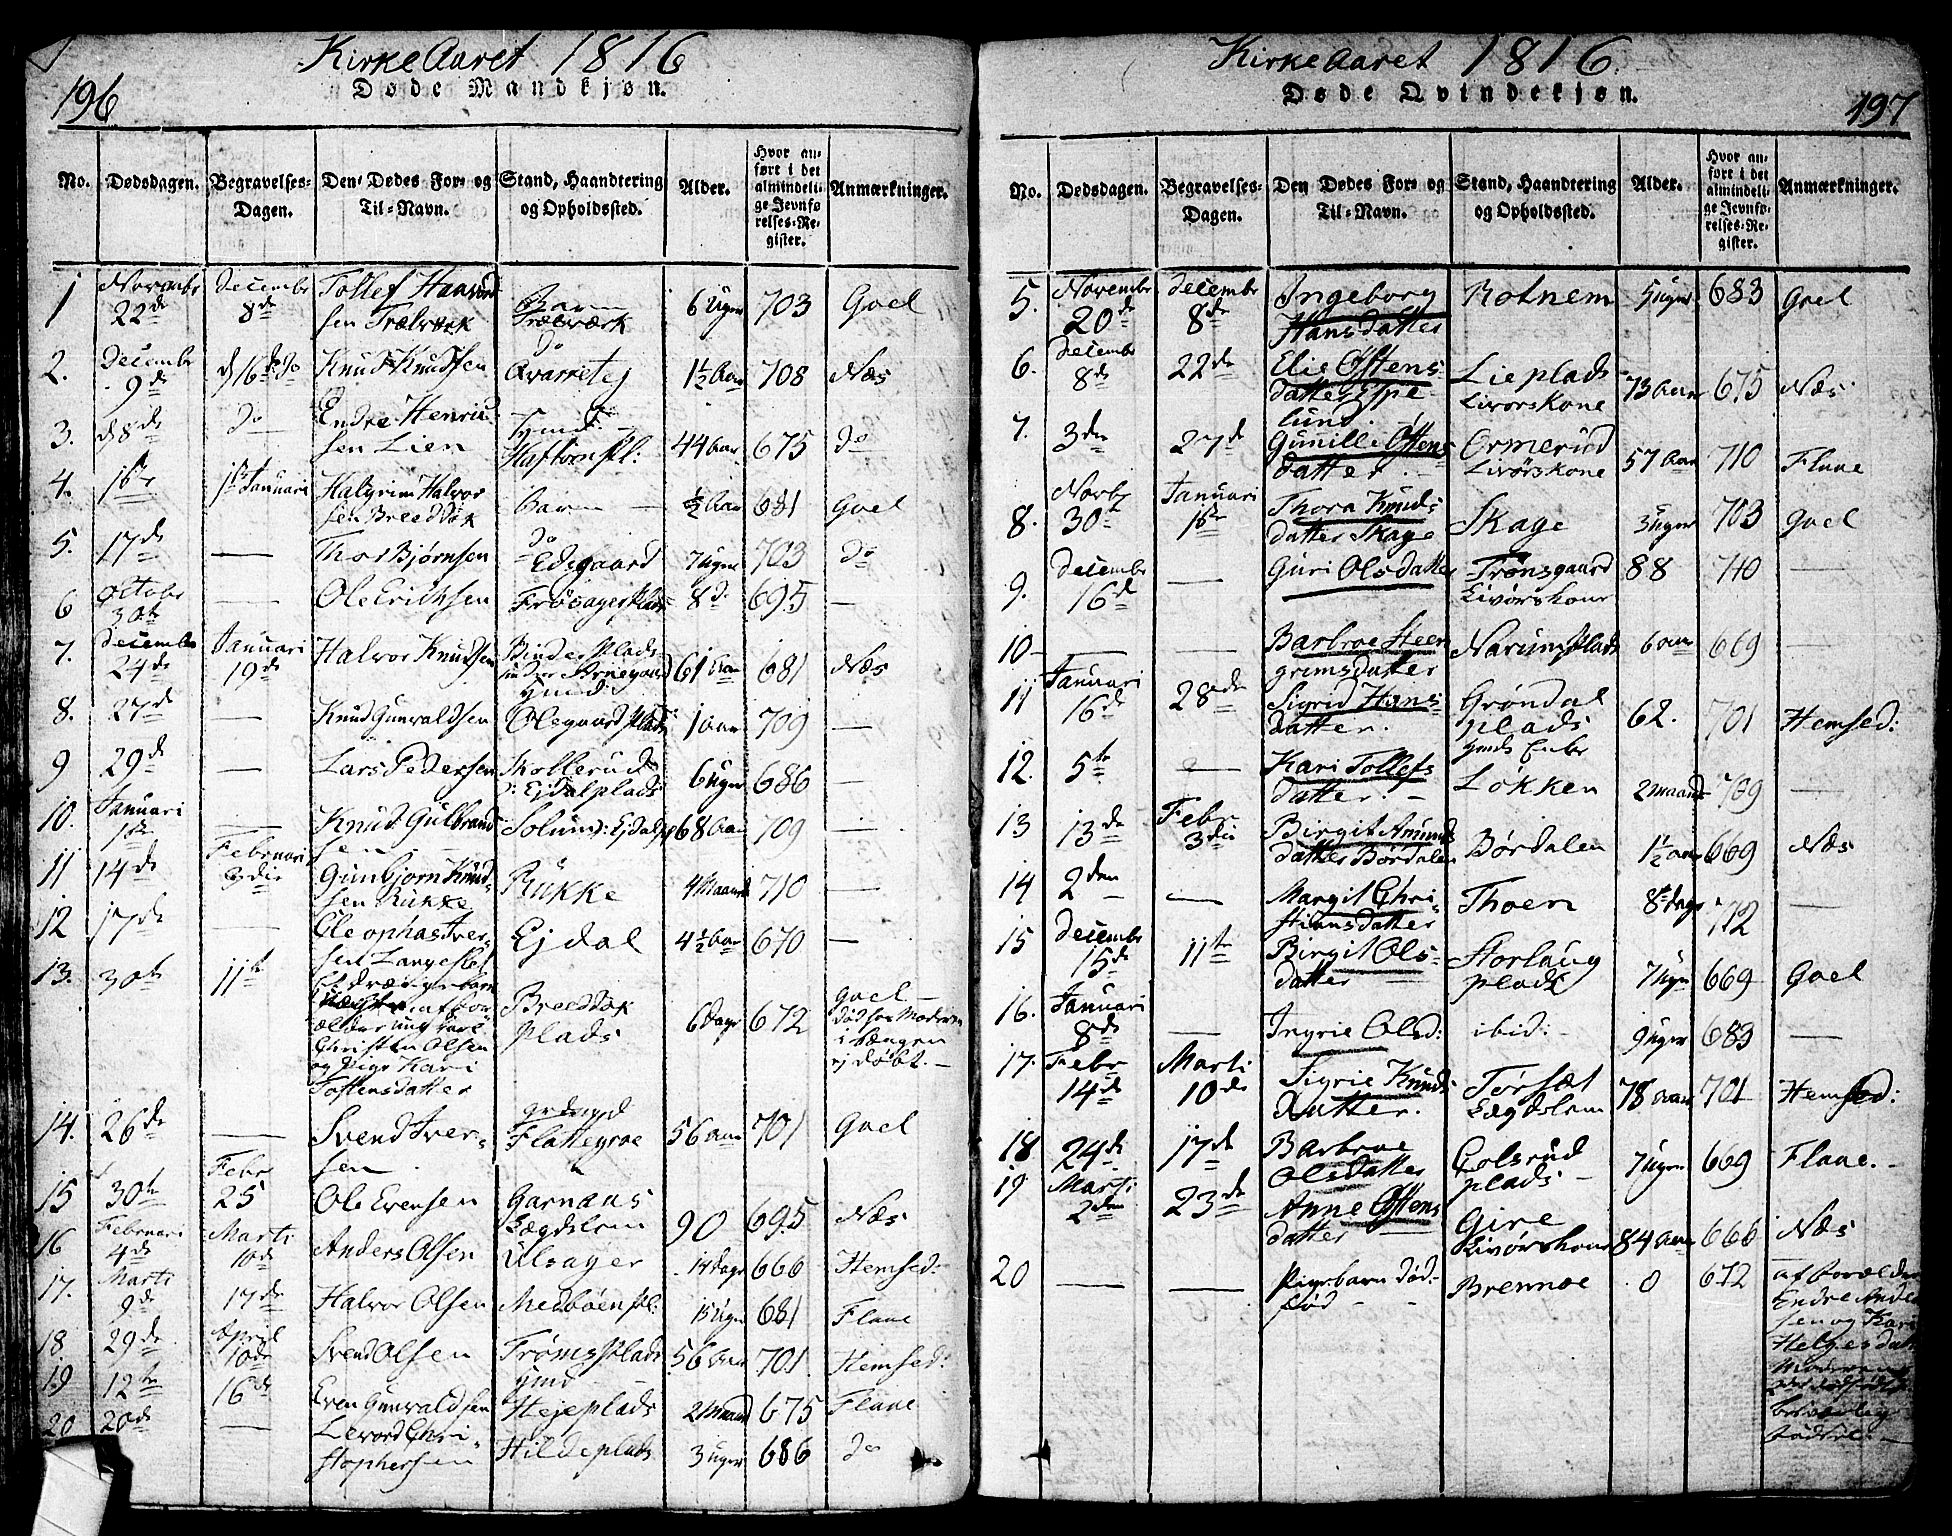 196
Kirke Aaret 1816
Døde Mandkjøn.
No. Dødsdagen. Begravelses-Dagen. Den Dødes For- og Til-Navn. Stand, Haandtering og Opholdssted. Alder. Hvor anført i det almindelige Jevnførelses-Register. Anmærkninger.
1 Novembr 22de Decembr 8de Tollef sen Trælværk Barn Trælværk 6 Uger 703 Goel
2. Decembr 9de Knud Knudsen do Qvarreteg 1½ Aar 708 Næs
3. 8de do Endre Henriksen Lien 44 Aar 675 do
4. 1ste 1ste Januari Halgrim Halvorsen Breedtok Barn ½ Aar 681 Goel
5. 17de — Thor Bjørnsen do Edsgaard 7 Uger 703 do
6 Octobr 30te — Ole Erichsen 8 do 695 —
7. Decembr 24de Januari 19de Halvor Knudsen 61 Aar 681 Næs
8. 27de — Knud Gunvaldsen Olegaard Plads 1 Aar 709 —
9 29de — Lars Pedersen Skollerud Ejdalplads 6 Uger 686 —
10. Januari 1ste — Knud Gulbrandsen 68 Aar 709 —
11 14de Februari 3die Gunbjørn Knudsen Rukke Rukke 4 Maaned 710 —
12 17de — Cleophas Iversen Ejdal 4½ Aar 670 —
13. 30te 11te Christen Olsen og Pige Kari Toftensdatter Breedtok Plads 6 Dage 672 Goel død hos Moderen i Sængen ej døbt. —
14. 26de — Svend Iversen Flattegroe 56 Aar 701 Goel
15 30te Febr 25 Ole Evensen Garnaas Lægdslem 90 695 Næs
16 Februari 4de Marti 10de Anders Olsen Ulsager 14 Dage 666 Hemsed:
17. Marti 9de 17de Halvor Olsen Medbøenpl: 15 Uger 681 Flaae
18 29de April 10de Svend Olsen 56 Aar 701 Hemsed:
19 12te 16de Even Gunvaldsen Hejeplads 2 Maaned 675 Flaae
20 20de — Levord Christophersen Hildeplads 3 Uger 686 do
197
Kirke Aaret 1816
Døde Qvindekjøn.
No. Dødsdagen. Begravelses-Dagen. Den Dødes For- og Til-Navn. Stand, Haandtering og Opholdssted. Alder. Hvor anført i det almindelige Jevnførelses-Register. Anmærkninger.
5. Novembr 20de Decembr 8de Ingeborg Hansdatter Rotnem 5 Uger 683 Goel
6. Decembr 8de 22de Elie Østensdatter Espelund Lieplads Livørskone 73 Aar 675 Næs
7. 3die 27de Gunille Østensdatter Ormerud Livørskone 57 Aar 710 Flaae
8. Novbr 30te Januari 1ste Thora Knudsdatter Skage Skage 3 Uger 703 Goel
9. Decembr 16de — Guri Olsdatter Trønsgaard Livørskone 88 710 —
10 — — Barbroe Steengrimsdatter Narumplads 6 Aar 669 —
11 Januari 16de 28de Sigrid Hansdatter Grøndal plads 62. 701 Hemsed:
12. 5te — Kari Tollefsdatter Løkken 2 Maaned 709 —
13 13de Febr 3die Birgit Amundsdatter Børdalen Børdalen 1½ Aar 669 Næs
14 2den — Margit Christiansdatter Thoen 8te Dage 712 —
15 Decembr 15de 11te Birgit Olsdatter Storlaug plads 7 Uger 669 Goel
16. Januari 8de — Ingrie Olsd: ibid: 9 Uger 683 —
17. Febr 14de Marti 10de Sigrie Knudsdatter Tørset Lægdslem 78 Aar 701 Hemsed:
18 24de 17de Barbroe Olsdatter Golsrud plads 7 Uger 669 Flaae. —
19 Marti 2den 23de Anne Østensdatter Gire Livørskone 84 Aar 666 Næs
20 — Pigebarn dødfød Brennoe 0 672 af Forældre Endre Andersen og Kari Helgesdatter